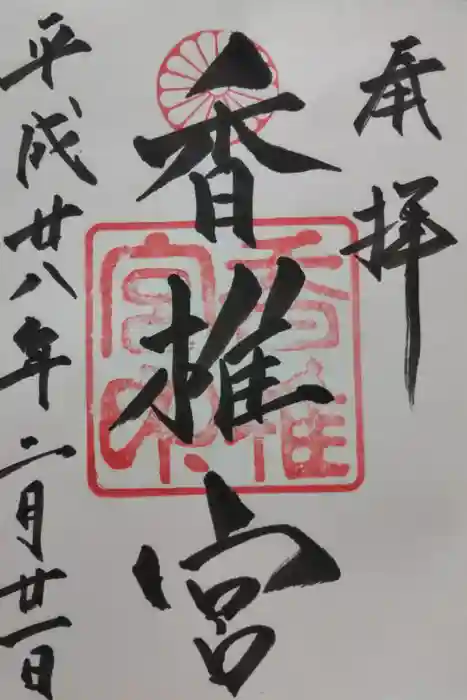 奉拝
香椎宮
平成廿八年二月廿一日